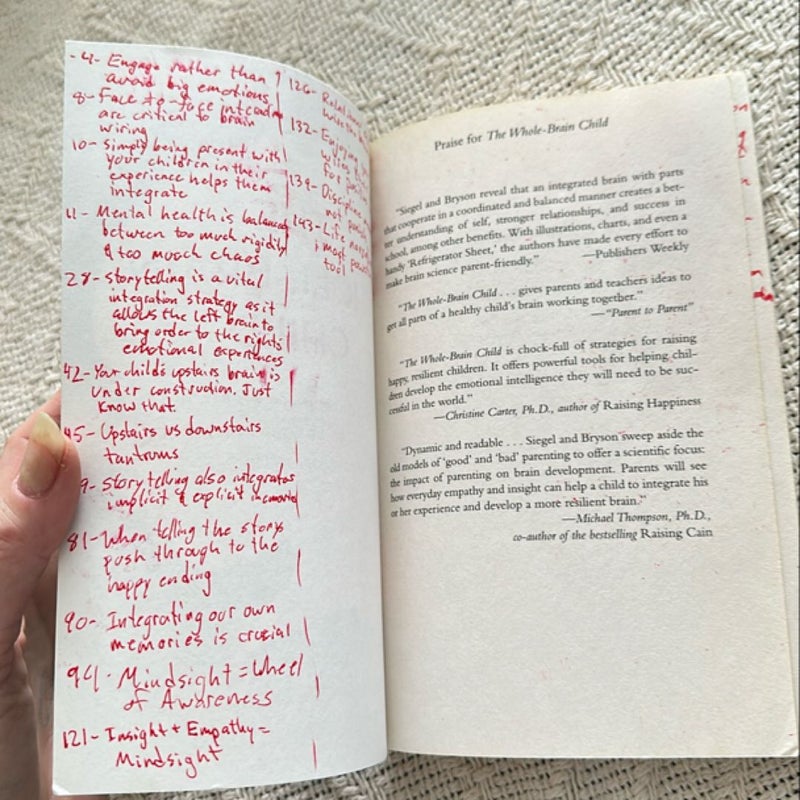 -4- Engage rather than
avoid big emotions
8- Face-to-face
are critical to brain
wiring
10- Simply being present with
your children in their
experience helps them
integrate
11- Mental health is balanced
between too much rigidity
& too much chaos
28- Storytelling is a vital
integration strategy as it
allows the left brain to
bring order to the rights
emotional experiences
42- Your child's upstairs brain is
under construction. Just
know that.
45- Upstairs vs downstairs
tantrums
9- Storytelling also integrates
implicit & explicit memories
81- When telling the story
push through to the
happy ending
90- Integrating our own
memories is crucial
94- Mindsight = Wheel
of Awareness
121- Insight + Empathy =
Mindsight
126-
132- Enjoying
139- Discipline
not
143- Life
most
tool
Praise for The Whole-Brain Child
"Siegel and Bryson reveal that an integrated brain with parts
that cooperate in a coordinated and balanced manner creates a bet-
ter understanding of self, stronger relationships, and success in
school, among other benefits. With illustrations, charts, and even a
handy 'Refrigerator Sheet,' the authors have made every effort to
make brain science parent-friendly." —Publishers Weekly
"The Whole-Brain Child . . . gives parents and teachers ideas to
get all parts of a healthy child's brain working together."
—"Parent to Parent"
"The Whole-Brain Child is chock-full of strategies for raising
happy, resilient children. It offers powerful tools for helping chil-
dren develop the emotional intelligence they will need to be suc-
cessful in the world."
—Christine Carter, Ph.D., author of Raising Happiness
"Dynamic and readable . . . Siegel and Bryson sweep aside the
old models of 'good' and 'bad' parenting to offer a scientific focus:
the impact of parenting on brain development. Parents will see
how everyday empathy and insight can help a child to integrate his
or her experience and develop a more resilient brain."
—Michael Thompson, Ph.D.,
co-author of the bestselling Raising Cain